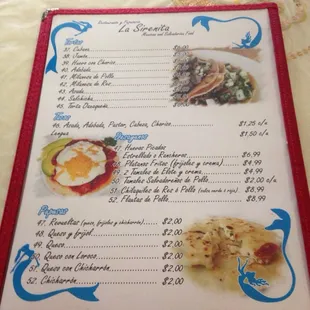 Restaurante y Pupuseria
La Sirenita
Mexican and Salvadorean Food
Tortas
37. Cabeza
38. Jamon
39. Huevo con Chorizo
40. Adobada
41. Milanesa de Pollo
42. Milanesa de Res
43. Asada
44. Salchicha
45. Torta Ahogada
Tacos
46. Asada, Adobada, Pastor, Cabeza, Chorizo $1.25 c/u
Lengua $1.50 c/u
Desayunos
47. Huevos Picados
Estrellado o Rancheros $6.99
48. Platanos Fritos (frijoles y crema) $4.99
49. 2 Tamales de Elote y crema $4.99
50. Tamales Salvadoreños de Pollo $2.00 c/u
51. Chilaquiles de Res ó Pollo (salsa verde o roja) $8.99
52. Flautas de Pollo $8.99
Pupusas
47. Revueltas (queso, frijoles y chicharrón) $2.00
48. Queso y frijol $2.00
49. Queso $2.00
50. Queso con Loroco $2.00
51. Queso con Chicharrón $2.00
52. Chicharrón $2.00